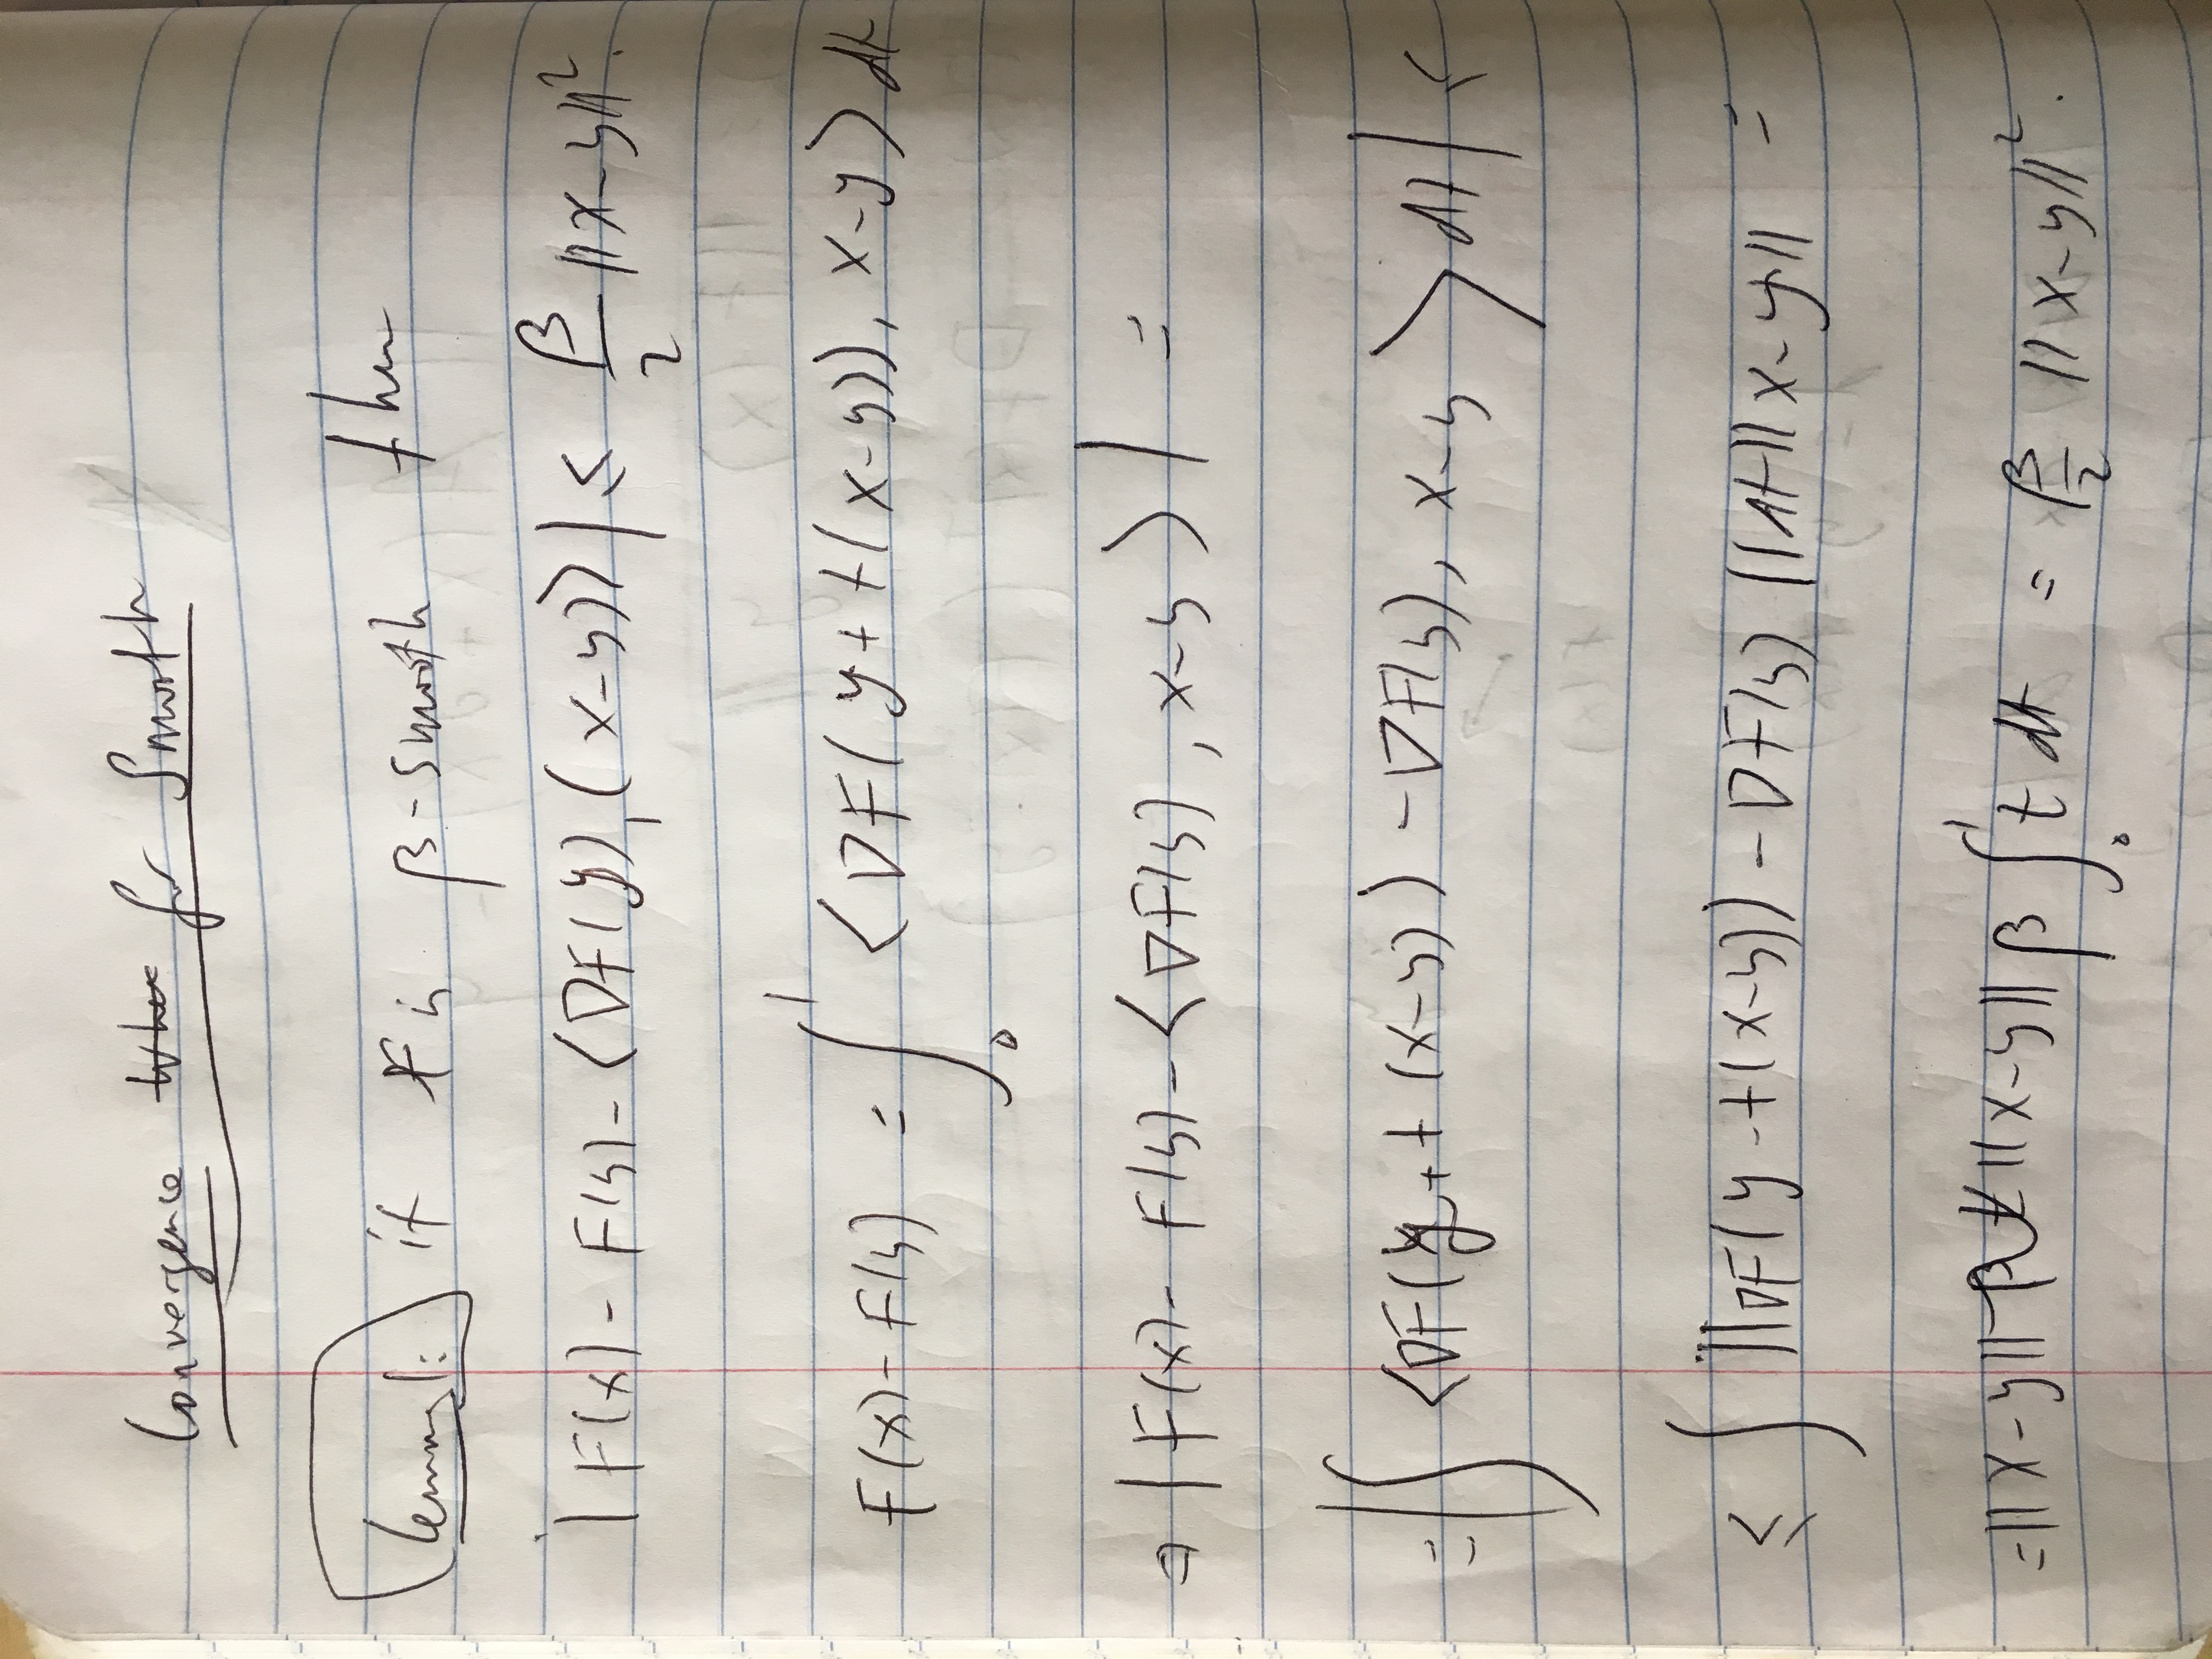 Convergence for Smooth
Lemma 1: if F is β-smooth then
| F(x) - F(y) - ⟨∇F(y), (x-y)⟩ | ≤ β/2 ||x-y||².
F(x) - F(y) = ∫₀¹ ⟨∇F(y + t(x-y)), x-y⟩ dt
⇒ | F(x) - F(y) - ⟨∇F(y), x-y⟩ | =
= | ∫ ⟨∇F(y + t(x-y)) - ∇F(y), x-y⟩ dt | ≤
≤ ∫ ||∇F(y - t(x-y)) - ∇F(y)|| dt ||x-y|| =
= ||x-y|| ||x-y|| β ∫₀¹ t dt = β/2 ||x-y||².